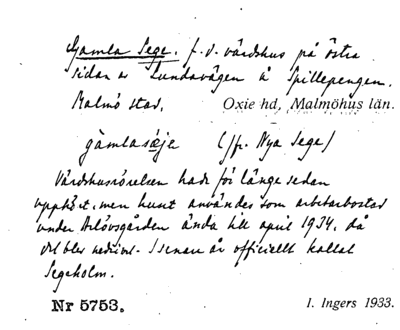 Gamla Sege. f.d. värdshus på östra
sidan av Lundavägen å Spillepengen.
Malmö stad. Oxie hd, Malmöhus län.
gàmlasęje (Jfr. Nya Sege)
Värdshusrörelsen hade för länge sedan
upphört, men huset användes som arbetarbostad
under Arlövsgården ända till april 1934, då
det blev nedrivet. I senare år officiellt kallat
Segeholm.
Nr 5753. I. Ingers 1933.